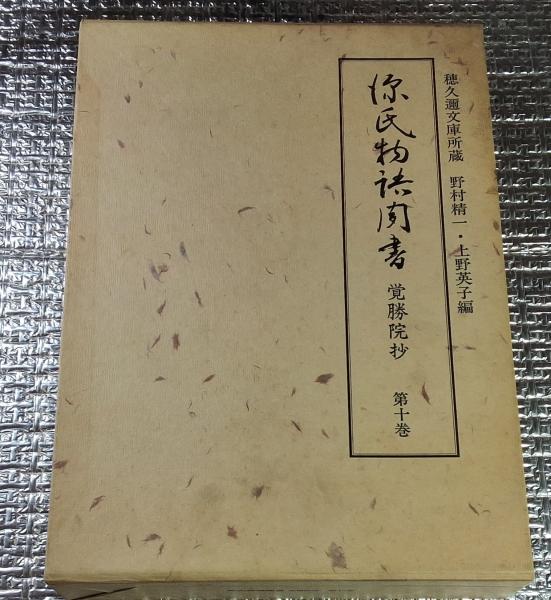 穂久邇文庫所蔵　野村精一・上野英子編
源氏物語聞書　覚勝院抄　第十巻